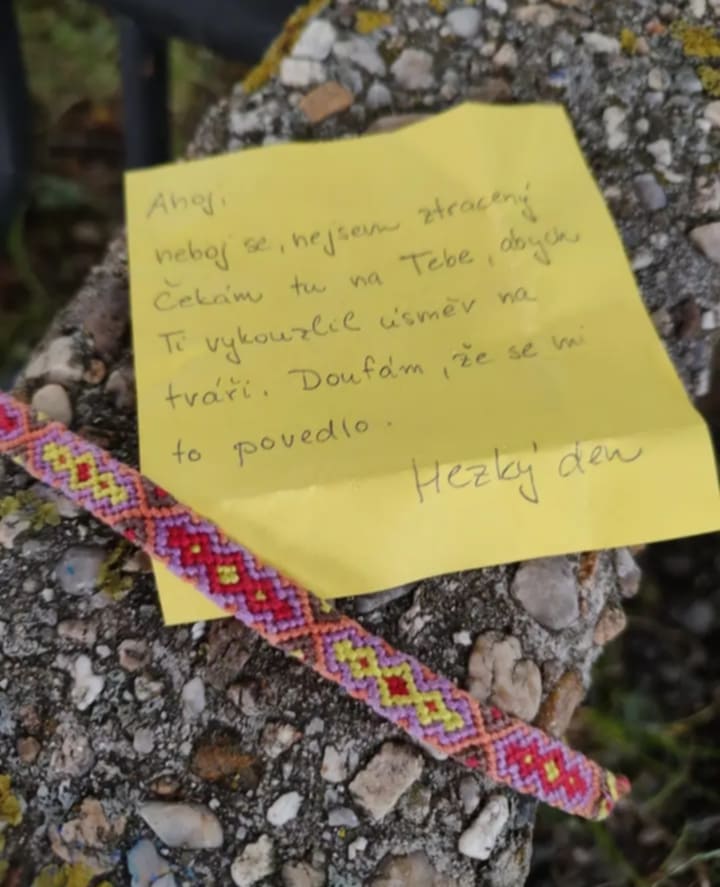 Ahoj,
neboj se, nejsem ztracený
Čekám tu na Tebe, abych
Ti vykouzlil úsměv na
tváři. Doufám, že se mi
to povedlo.
Hezký den